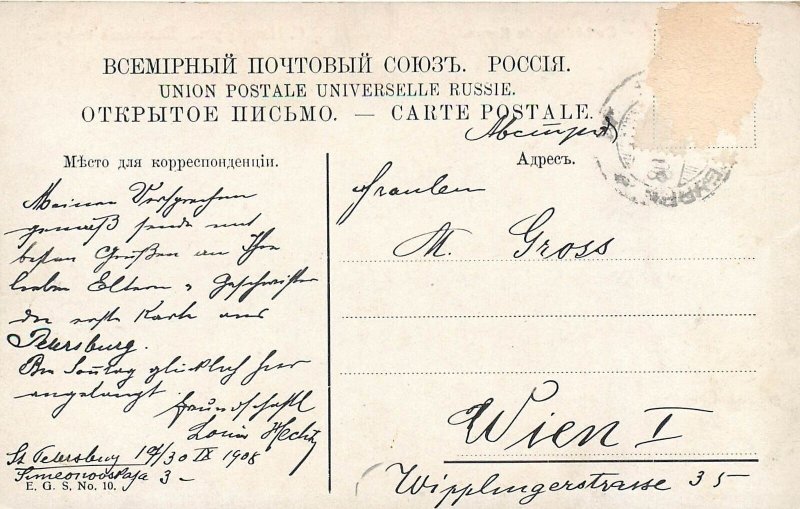 ВСЕМІРНЫЙ ПОЧТОВЫЙ СОЮЗЪ. РОССІЯ.
UNION POSTALE UNIVERSELLE RUSSIE.
ОТКРЫТОЕ ПИСЬМО. — CARTE POSTALE.
Австрія
Мѣсто для корреспонденціи.
Адресъ.
Meinem Versprechen
gemäß sende mit
besten Grüßen an Ihre
lieben Eltern u Geschwister
die erste Karte aus
Petersburg.
Bin Sonntag glücklich hier
angelangt
freundschaftl
Louis
St Petersburg 17/30 IX 1908
Simeonovskaja 3 –
E. G. S. No. 10.
Fraulein
M. Gross
Wien I
Wipplingerstrasse 35